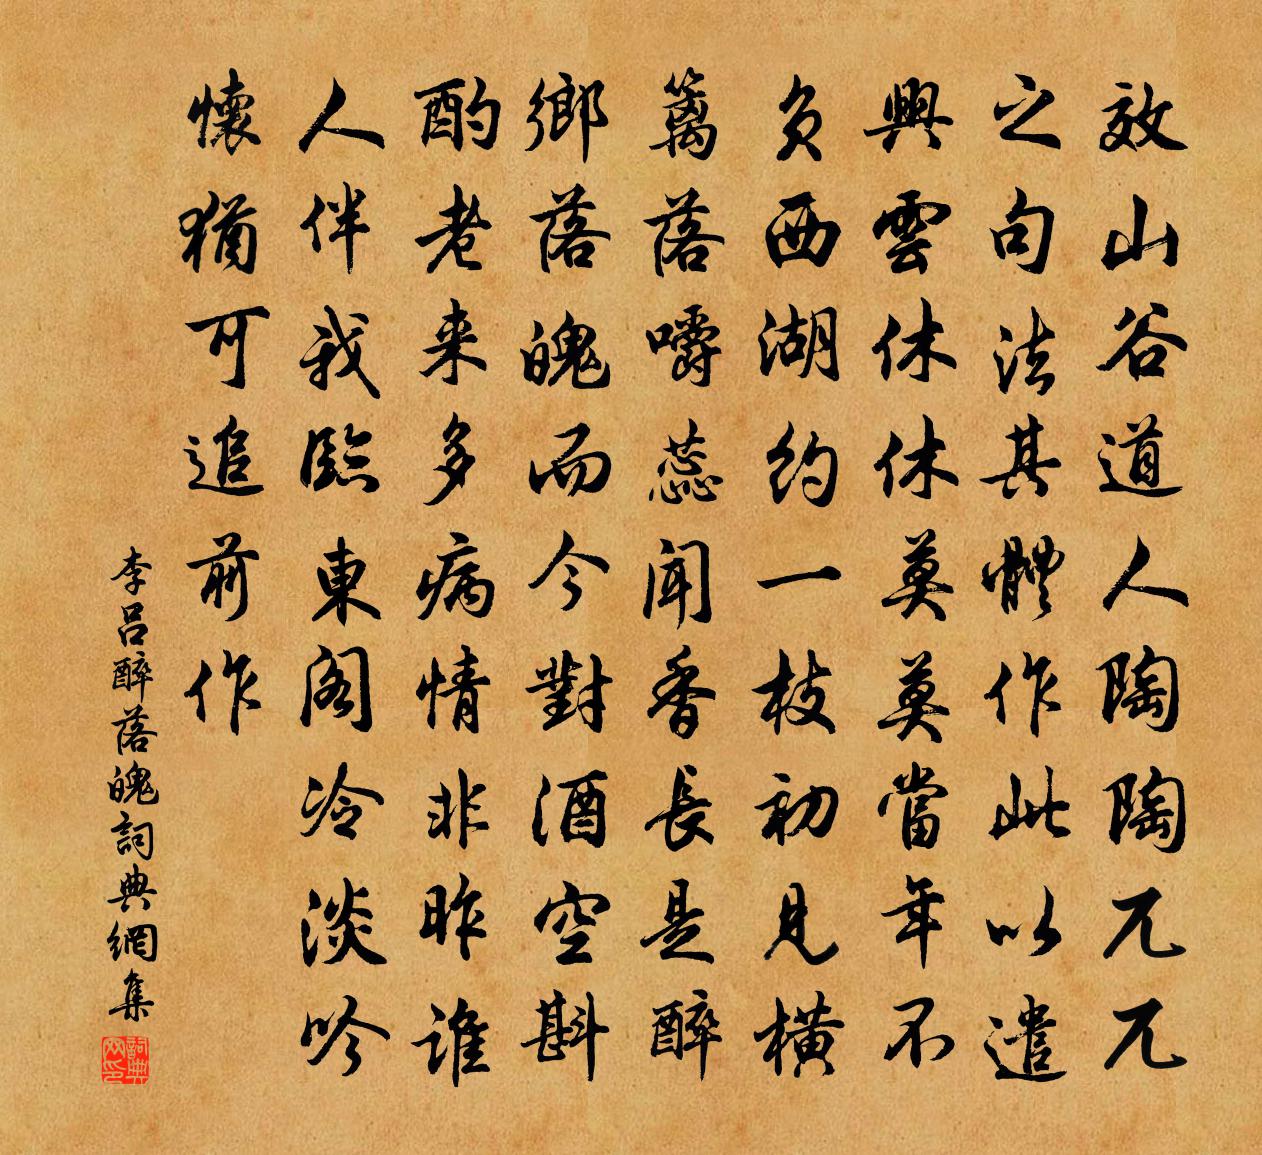 效山谷道人陶陶兀兀
之句法其體作此以遣
興雲休休莫莫當年不
負西湖約一枝初見橫
籬落嚼蕊聞香長是醉
鄉落魄而今對酒空斟
酌老来多病情非昨誰
人伴我臨東阁冷淡吟
懷猶可追前作
李吕醉落魄詞典網集
詞典网印